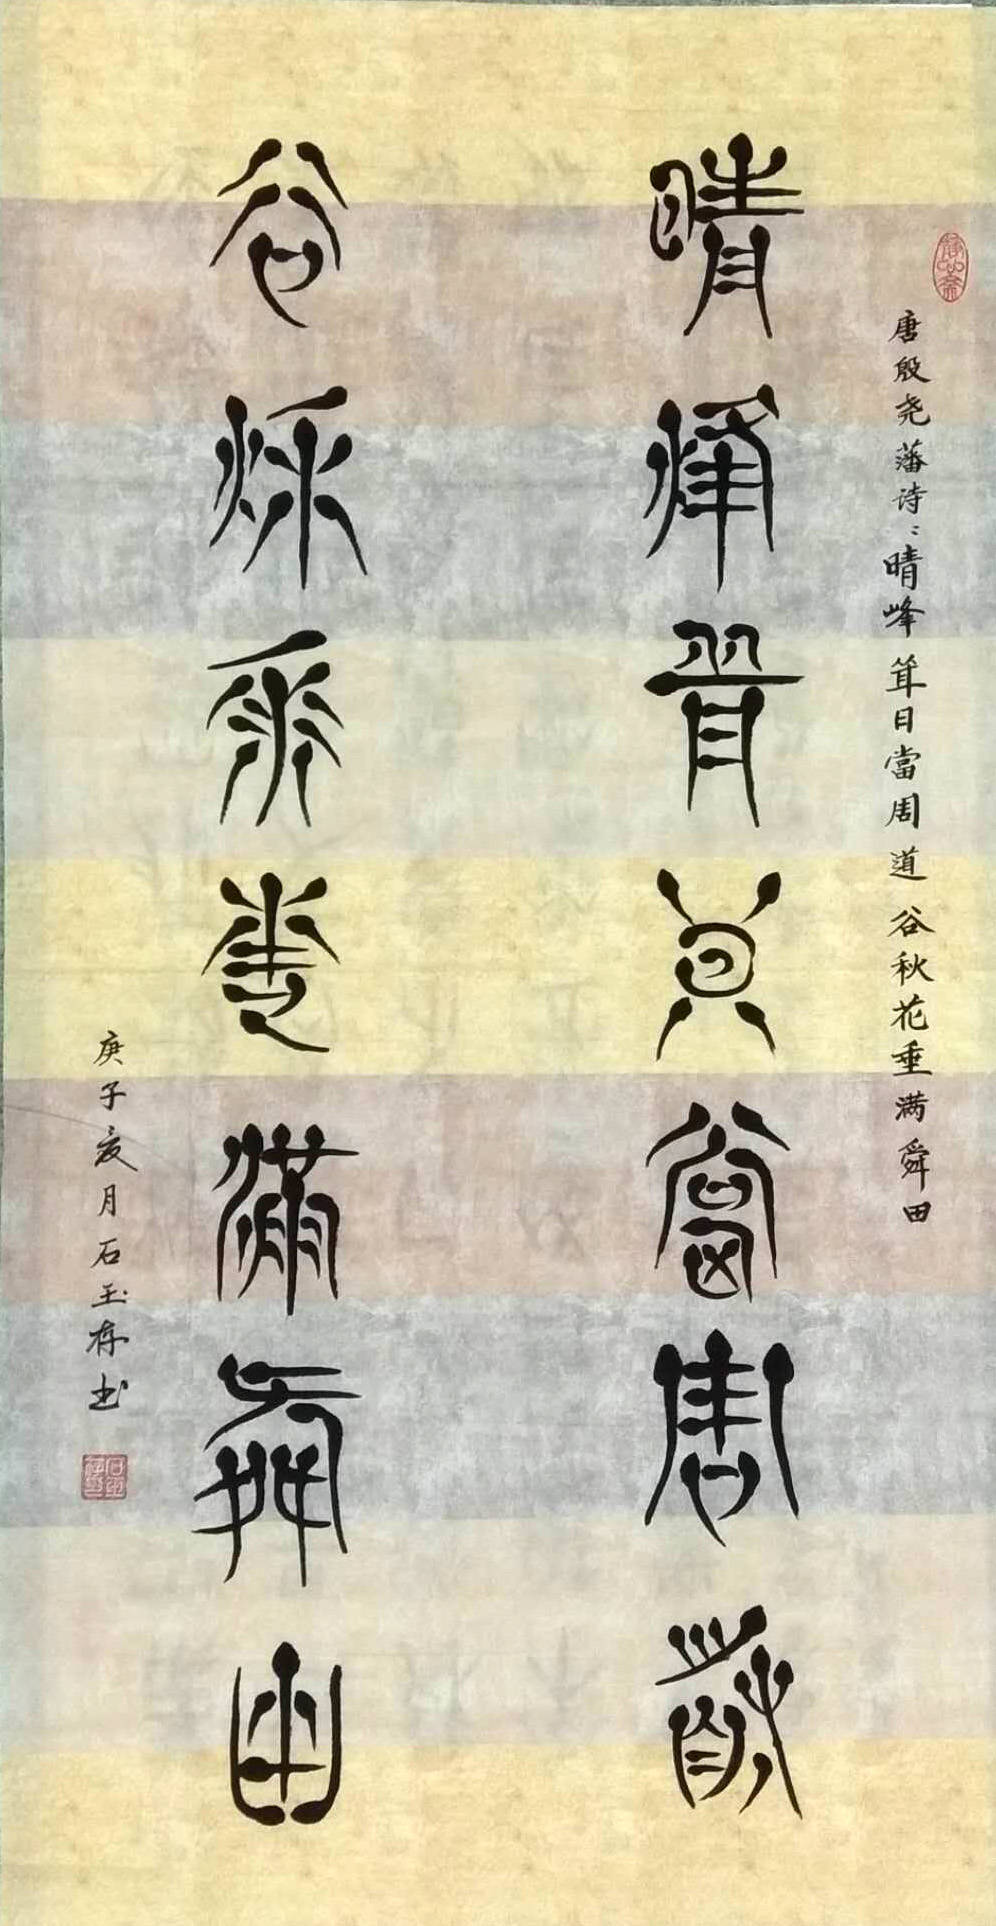 唐殷尧藩诗：晴峰耸日當周道谷秋花垂满舜田
晴峰耸日當周道
谷秋垂花满舜田
庚子夏月石玉存书